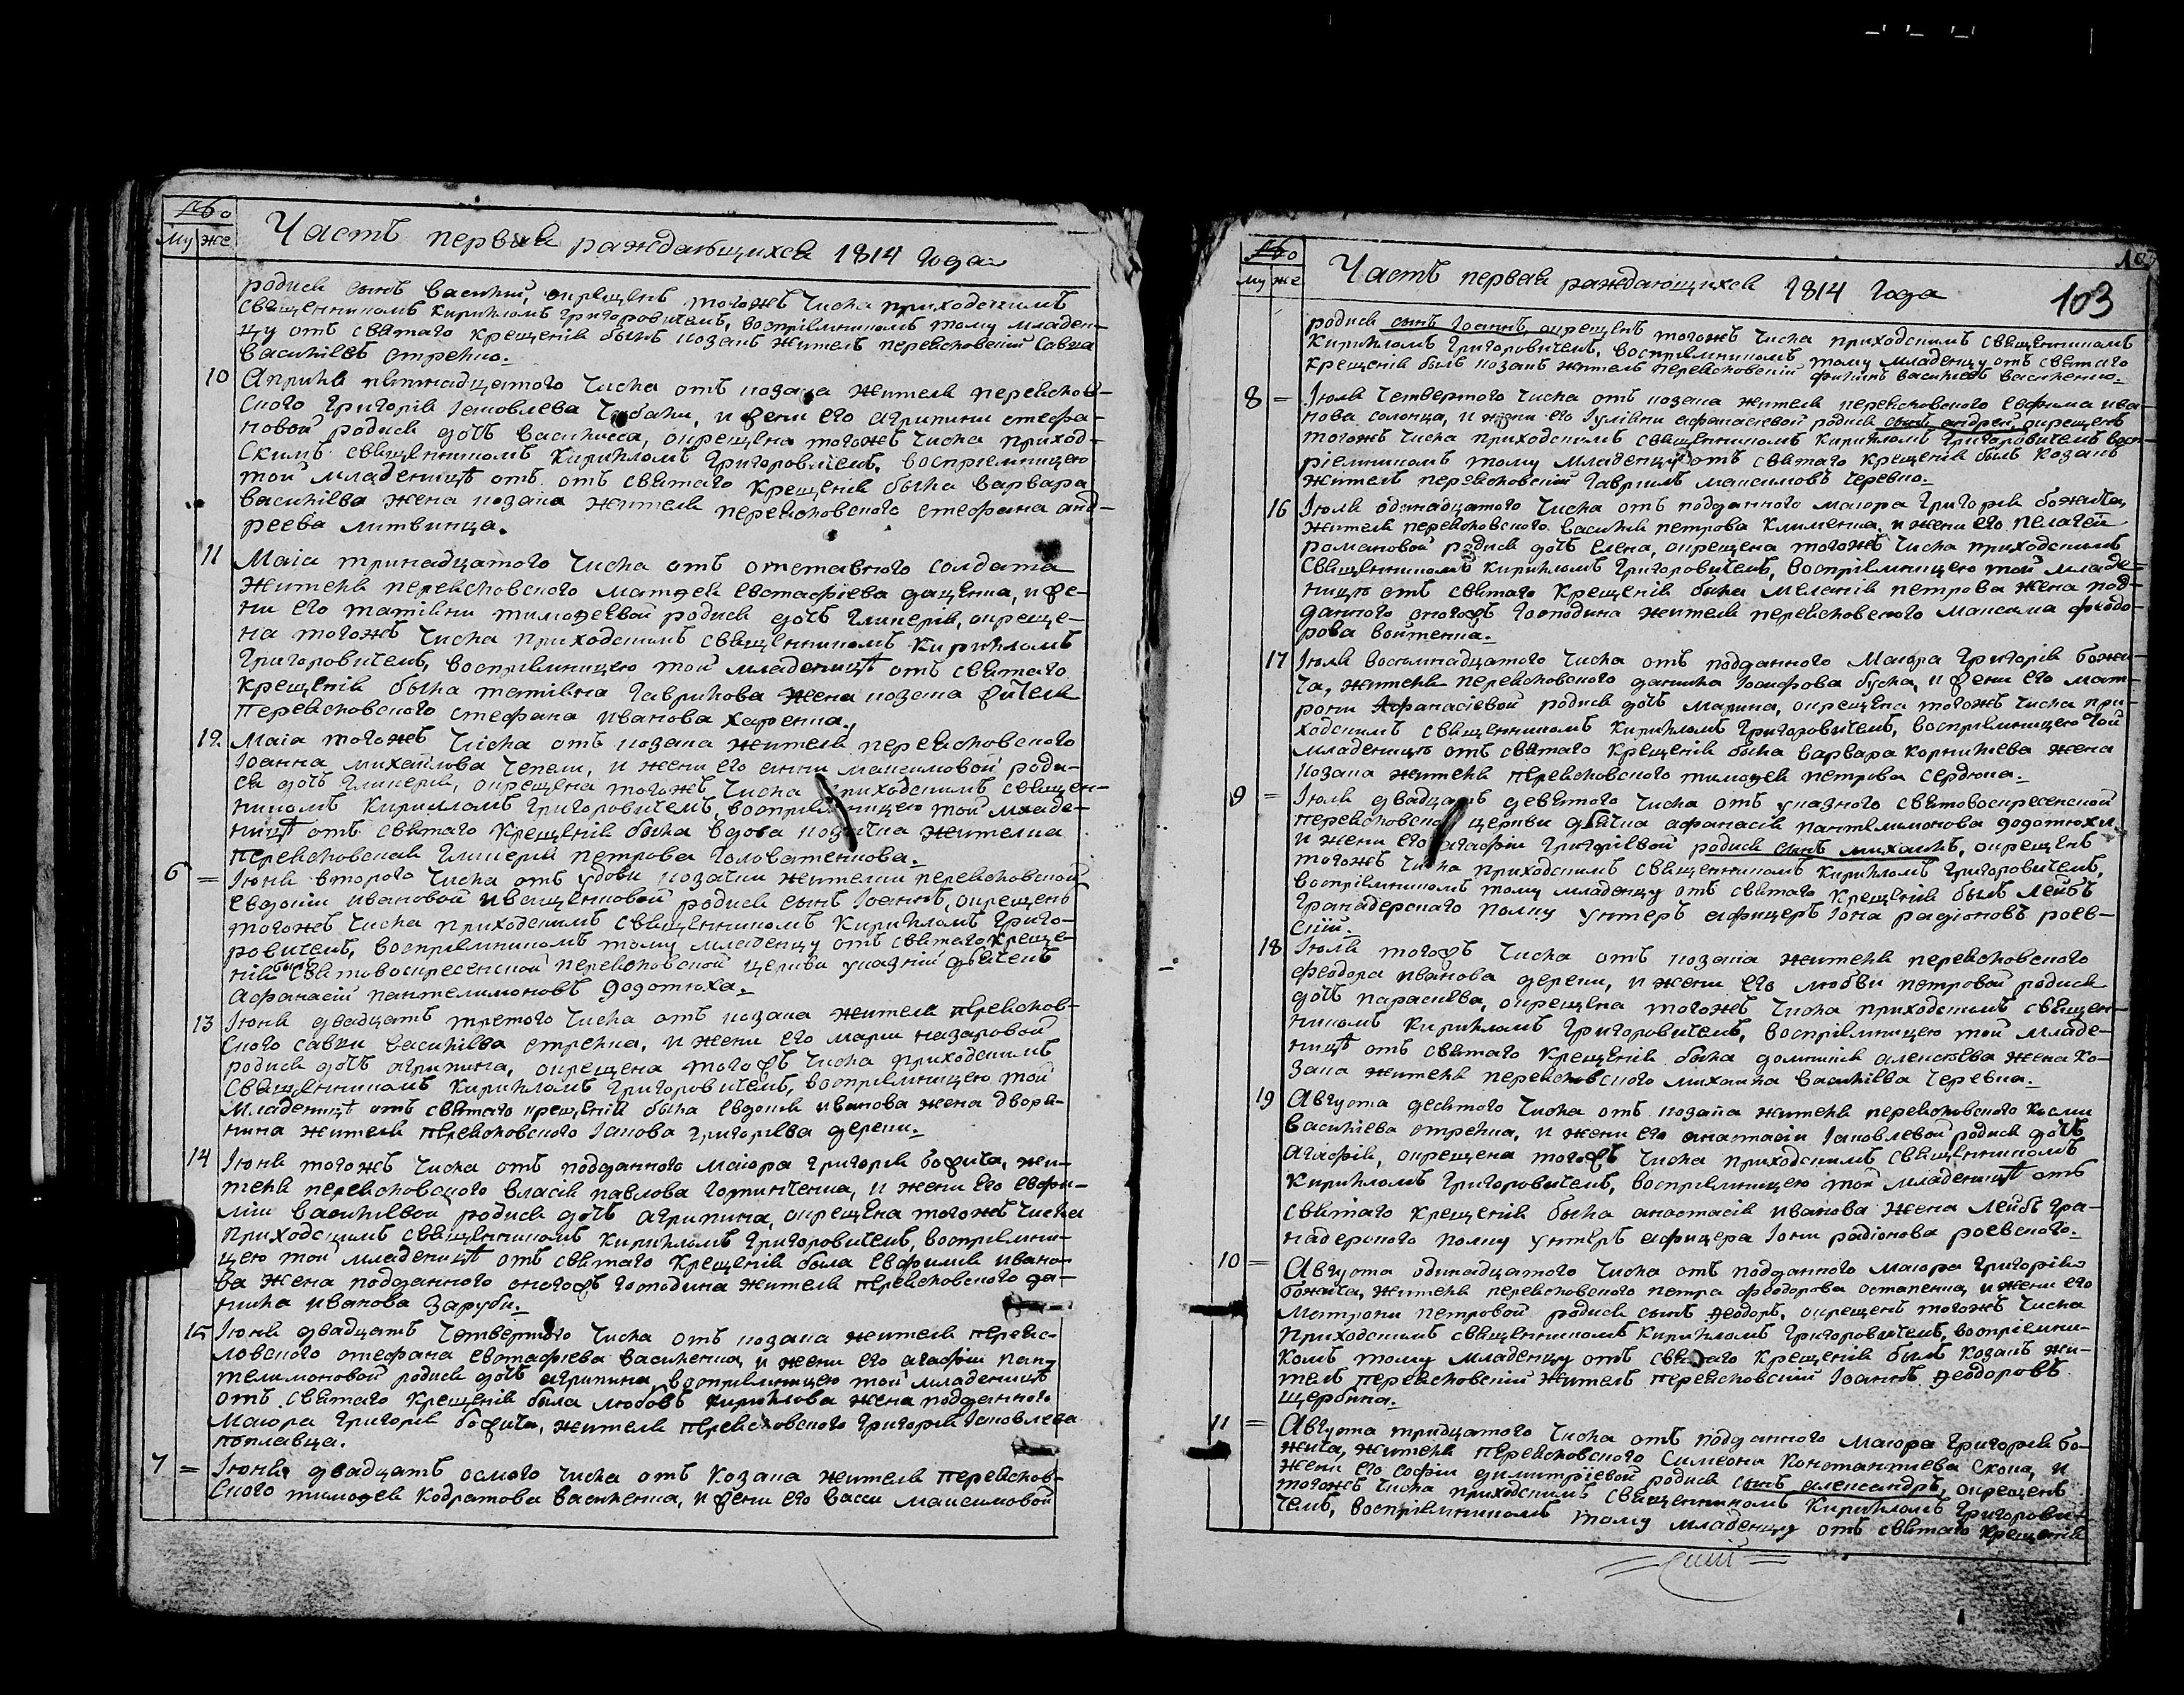 №
Му же
Часть первая раждающихся 1814 года
родися сынъ Василий, окрещенъ тогожъ числа приходскимъ
священникомъ Кирилломъ Григоровичемъ, воспрiемникомъ тому младен-
цу отъ святаго крещенiя былъ козакъ житель перекоповскiй Савва
Василiевъ стрелко.
10 Априля пятнадцетого числа отъ козака жителя перекопов-
ского Григорiя Iаковлева, и жени его агрипини стефа-
новой родися дочь Василисса, окрещена тогожъ числа приход-
скимъ священникомъ Кирилломъ Григоровичемъ, воспрiемницею
той младеницѣ отъ отъ святаго крещенiя была варвара
василiева жена козака жителя перекоповского стефана анд-
реева литвинца.
11 Маiа тринадцатого числа отъ отставного солдата
жителя перекоповского матѳея евстафiева дащенка, и же-
ни его татiяни тимоѳеевой родися дочь гликерiя, окреще-
на тогожъ числа приходскимъ священникомъ Кирилломъ
Григоровичемъ, воспрiемницею той младеницѣ отъ святаго
крещенiя была татiяна гаврилова жена козака жителя
перекоповского стефана иванова харченка.
12. Маiа тогожъ числа отъ козака жителя перекоповского
Iоанна михайлова чепели, и жени его анни максимовой роди-
ся дочь гликерiя, окрещена тогожъ числа приходскимъ священ-
никомъ Кирилломъ Григоровичемъ, воспрiемницею той младе-
ницѣ отъ святаго крещенiя была вдова козачка жителка
перекоповская гликерiя петрова головатенкова.
6 = Iюня второго числа отъ удови козачки жителки перекоповской
Евдокiи ивановой иващенковой родися сынъ Iоаннъ, окрещенъ
тогожъ числа приходскимъ священникомъ Кирилломъ Григо-
ровичемъ, воспрiемникомъ тому младенцу отъ святаго креще-
нiя былъ святовоскресенской перекоповской церкви указнiй дьячекъ
Афанасiй пантелимоновъ додотюха.
13 Iюня двадцать третого числа отъ козака жителя перекопов-
ского савки василiева стрелка, и жени его марiи назаровой
родися дочь агрипина, окрещена тогожъ числа приходскимъ
священникомъ Кирилломъ Григоровичемъ, воспрiемницею той
младеницѣ отъ святаго крещенiя была евдокiя иванова жена дворя-
нина жителя перекоповского Iакова григорiева дереки.
14 Iюня тогожъ числа отъ подданного маiора григорiя божича, жи-
теля перекоповского власiя павлова готинченка, и жени его евфи-
мiи василiевой родися дочь агрипина, окрещена тогожъ числа
приходскимъ священникомъ Кирилломъ Григоровичемъ, воспрiемни-
цею той младеницѣ отъ святаго крещенiя была евфимiя ивано-
ва жена подданного оногожъ господина жителя перекоповского да-
нила иванова заруби.
15 Iюня двадцать четвертого числа отъ козака жителя переко-
повского стефана евстафiева василенка, и жени его агафiи пан-
телимоновой родися дочь агрипина, воспрiемницею той младеницѣ
отъ святаго крещенiя была любовъ кирилова жена подданного
маiора григорiя божича, жителя перекоповского григорiя Iаковлева
поплавца.
7 = Iюня двадцать осмого числа отъ козака жителя перекопов-
ского тимоѳея кодратова василенка, и жени его васси максимовой
№
му же
Часть первая раждающихся 1814 года
103
родися сынъ Iоаннъ, окрещенъ тогожъ числа приходскимъ священникомъ
Кирилломъ Григоровичемъ, воспрiемникомъ тому младенцу отъ святаго
крещенiя былъ козакъ житель перекоповскiй филипъ василiевъ василенко.
8 = Iюля четвертого числа отъ козака жителя перекоповского евфима ива-
нова солонца, и жени его Iулiянiи афанасiевой родися сынъ андрей, окрещенъ
тогожъ числа приходскимъ священникомъ Кирилломъ Григоровичемъ восп-
рiемникомъ тому младенцу отъ святаго крещенiя былъ козакъ
житель перекоповскiй гаврiилъ максимовъ черевко.
16 Iюля одинадцатого числа отъ подданного маiора григорiя божича,
жителя перекоповского василiя петрова клименка, и жени его пелагеи
романовой родися дочь елена, окрещена тогожъ числа приходскимъ
священникомъ Кирилломъ Григоровичемъ, воспрiемницею той младе-
ницѣ отъ святаго крещенiя была меланiя петрова жена под-
данного оногожъ господина жителя перекоповского максима феодо-
рова войтенка.
17 Iюля восемнадцатого числа отъ подданного маiора григорiя божи-
ча, жителя перекоповского данила Iосифова буска, и жени его мат-
рони Афанасiевой родися дочь марина, окрещена тогожъ числа при-
ходскимъ священникомъ Кирилломъ Григоровичемъ, воспрiемницею той
младеницѣ отъ святаго крещенiя была варвара корнилева жена
козака жителя перекоповского тимоѳея петрова сердюка.
9 = Iюля двадцать девятого числа отъ указного святовоскресенской
перекоповской церкви дьячка афанасiя пантелимонова додотюхи
и жени его агафiи григорiевой родися сынъ михаилъ, окрещенъ
тогожъ числа приходскимъ священникомъ Кирилломъ Григоровичемъ,
воспрiемникомъ тому младенцу отъ святаго крещенiя былъ лейбъ
гранадерского полку унтеръ афицеръ Iона радiоновъ роев-
скiй.
18 Iюля тогожъ числа отъ козака жителя перекоповского
феодора иванова дереки, и жени его любви петровой родися
дочь параскева, окрещена тогожъ числа приходскимъ священ-
никомъ Кирилломъ Григоровичемъ, воспрiемницею той младе-
ницѣ отъ святаго крещенiя была домникiя алексеева жена ко-
зака жителя перекоповского михаила василiева черевка.
19 Августа десятого числа отъ козака жителя перекоповского косми
василiева стрелка, и жени его анастасiи Iаковлевой родися дочь
агафiя, окрещена тогожъ числа приходскимъ священникомъ
Кирилломъ Григоровичемъ, воспрiемницею той младеницѣ отъ
святаго крещенiя была анастасiя иванова жена лейбъ гра-
надерского полку унтеръ афицера Iони радiонова роевского.
10 = Августа одинадцатого числа отъ подданного маiора григорiя
божича, жителя перекоповского петра феодорова остапенка, и жени его
мотрони петровой родися сынъ ѳеодоръ, окрещенъ тогожъ числа
приходскимъ священникомъ Кирилломъ Григоровичемъ, воспрiемни-
комъ тому младенцу отъ святаго крещенiя былъ козакъ жи-
тель перекоповскiй житель перекоповскiй Iоаннъ ѳеодоровъ
щербина.
11 = Августа тридцатого числа отъ подданного маiора григорiя бо-
жича, жителя перекоповского симеона константiева скока, и
жени его софiи димитрiевой родися сынъ александръ, окрещенъ
тогожъ числа приходскимъ священникомъ Кирилломъ Григорови-
чемъ, воспрiемникомъ тому младенцу отъ святаго крещенiя